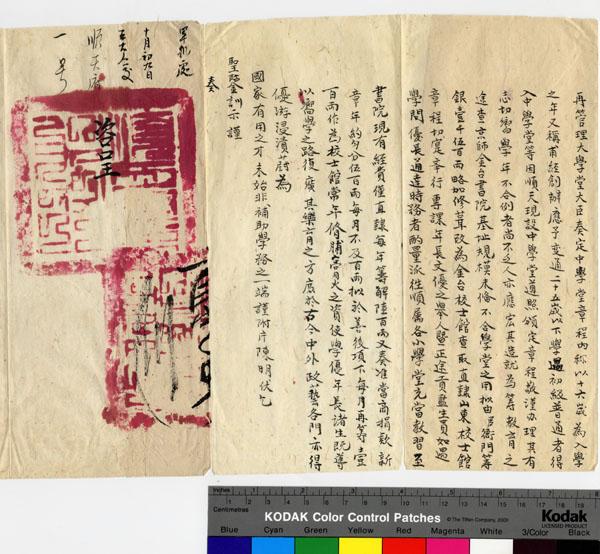 再管理大學堂大臣奏定中學堂章程內稱以十六歲為入學
之年又稱甫經創辦應予變通二十五歲以下學過初級普通者得
入中學堂等因順天現設中學堂遵照頒定章程敬謹辦理其有
志切嚮學年不合例者尚不乏人亦應宏其造就為籌教育之
途查京師金台書院基址規模未備不合學堂之用擬由臣衙門籌
銀壹千伍百兩略加修葺改為金台校士館查取直隸山東校士館
章程切實奉行專課年長文優之舉人暨正途貢監生員如遇
學問優長通達時務者酌量派往順屬各小學堂充當教習至
書院現有經費僅直隸每年籌解陸百兩又奏准當商捐款新
章年約勻分伍百兩每月不及百兩擬於善後項下每月再籌壹
百兩作為校士館常年脩脯膏火之資使學優年長諸生既導
以嚮學之路復廣其樂育之方庶於古今中外政藝各門亦得
優游浸漬蔚為
國家有用之才未始非補助學務之一端謹附片陳明伏乞
聖鑒訓示謹
奏
咨呈
軍机處
十月初九日
五大人交
順天府
一号
KODAK Color Control Patches
© The Tiffen Company, 2000
Kodak
LICENSED PRODUCT
Inches
Centimetres
Blue Cyan Green Yellow Red Magenta White 3/Color Black